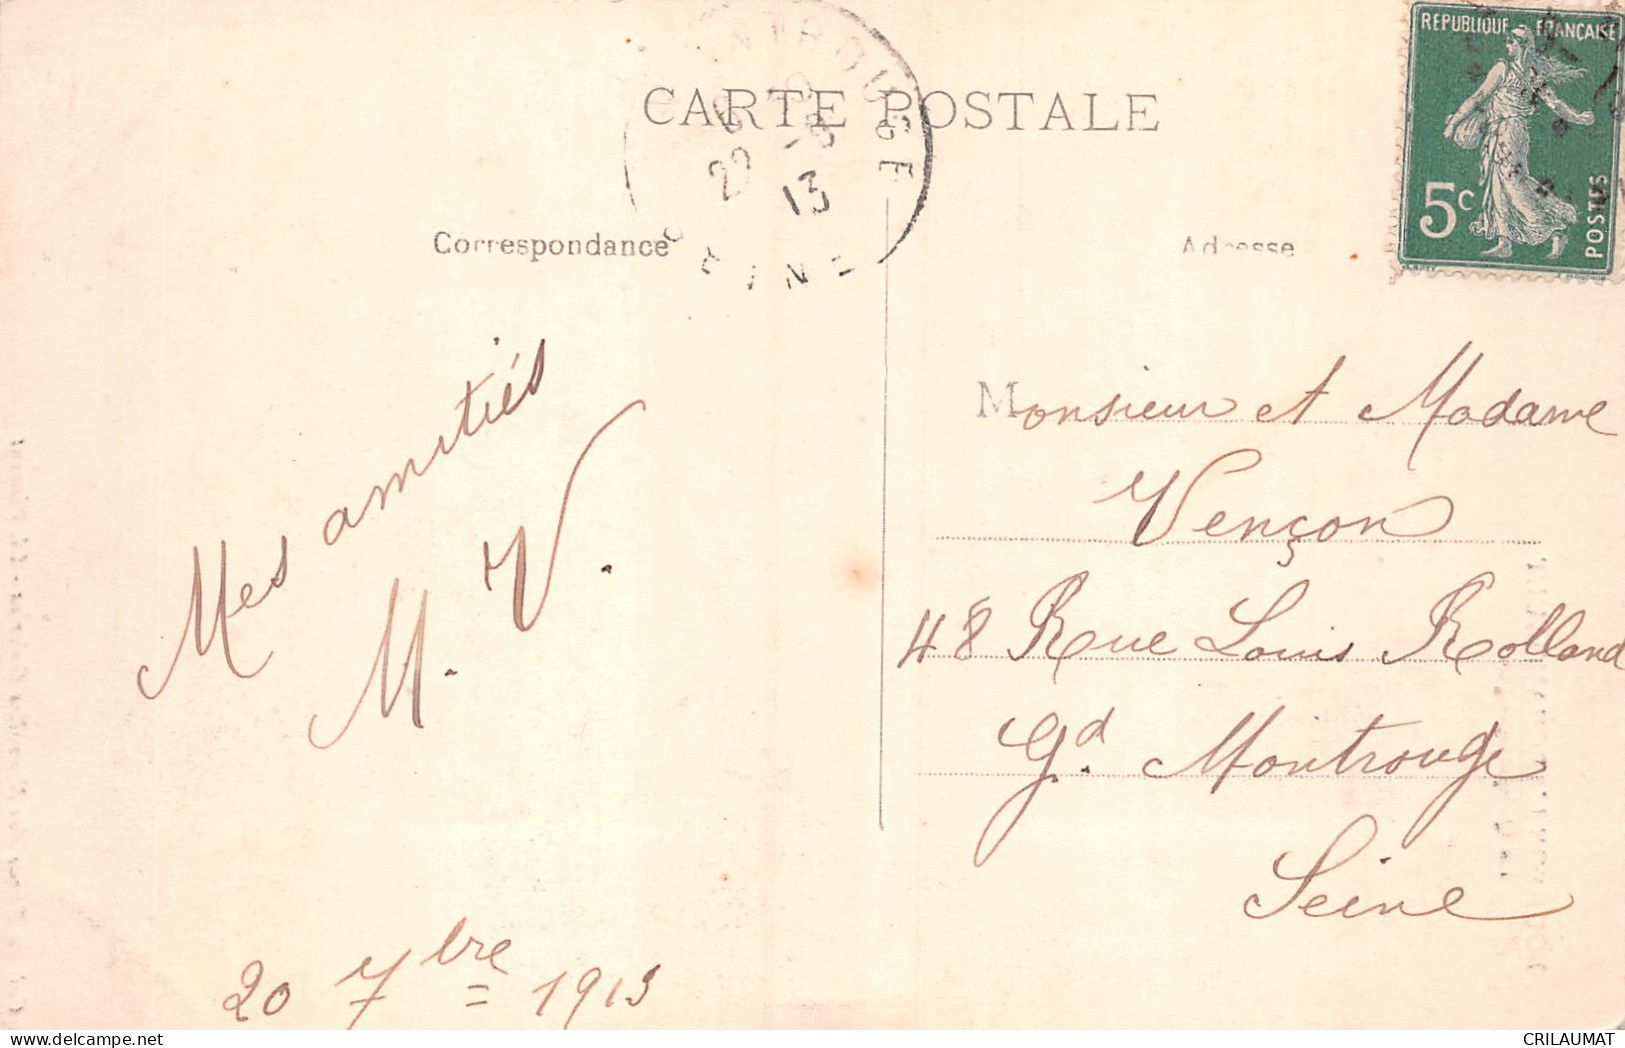 CARTE POSTALE
REPUBLIQUE FRANÇAISE
5c
POSTES
MONTROUGE
22 -9
13
SEINE
Correspondance
Adresse
Mes amitiés
M. V.
20 7bre 1913
Monsieur et Madame
Vençon
48 Rue Louis Rolland
Gd. Montrouge
Seine
CRILAUMAT